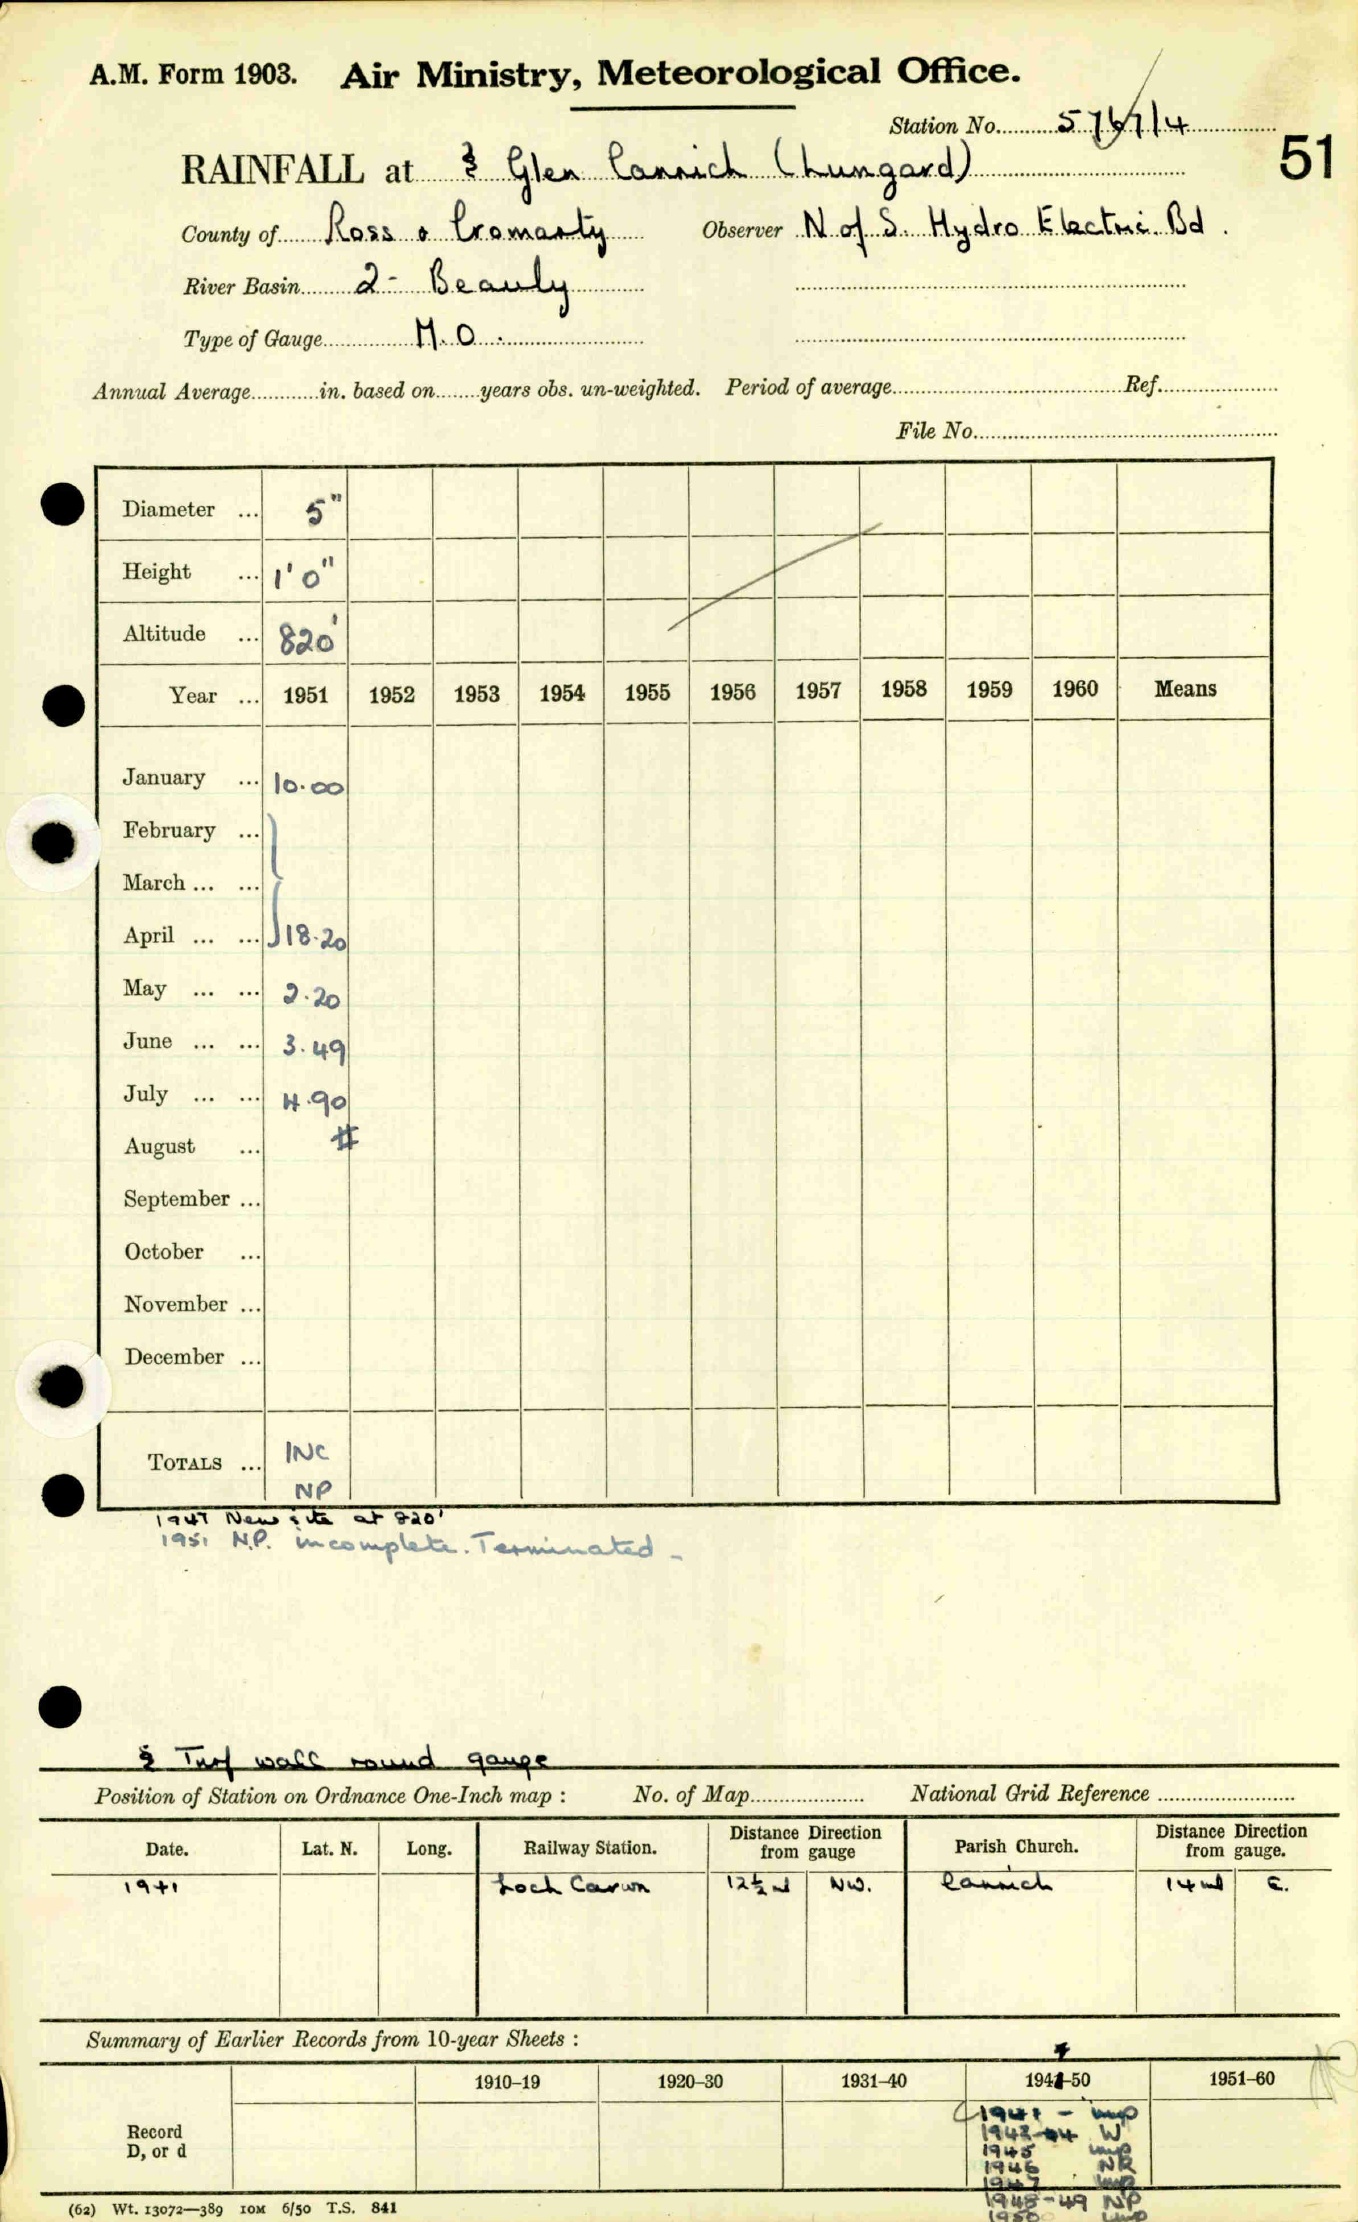 A.M. Form 1903. Air Ministry, Meteorological Office.
Station No. 5767/4
51
RAINFALL at § Glen Cannich (Lungard)
County of Ross & Cromarty Observer N of S. Hydro Electric Bd.
River Basin 2- Beauly
Type of Gauge M.O.
Annual Average in. based on years obs. un-weighted. Period of average Ref.
File No.
Diameter ... 5"
Height ... 1' 0"
Altitude ... 820'
Year ... 1951 1952 1953 1954 1955 1956 1957 1958 1959 1960 Means
January ... 10.00
February ...
March ... ...
April ... ... 18.20
May ... ... 2.20
June ... ... 3.49
July ... ... 4.90
August ... #
September ...
October ...
November ...
December ...
TOTALS ... INC
NP
1947 New site at 820'
1951 N.P. incomplete. Terminated -
§ Turf wall round gauge
Position of Station on Ordnance One-Inch map : No. of Map National Grid Reference
Date. Lat. N. Long. Railway Station. Distance Direction from gauge Parish Church. Distance Direction from gauge.
1941 Loch Carron 12½ ml NW. Cannich 14 ml E.
Summary of Earlier Records from 10-year Sheets :
1910–19 1920–30 1931–40 1941–50 1951–60
Record
D, or d
1941 - imp
1943-44 W
1945 imp
1946 NR
1947 imp
1948-49 NP
1950 imp
(62) Wt. 13072—389 10M 6/50 T.S. 841